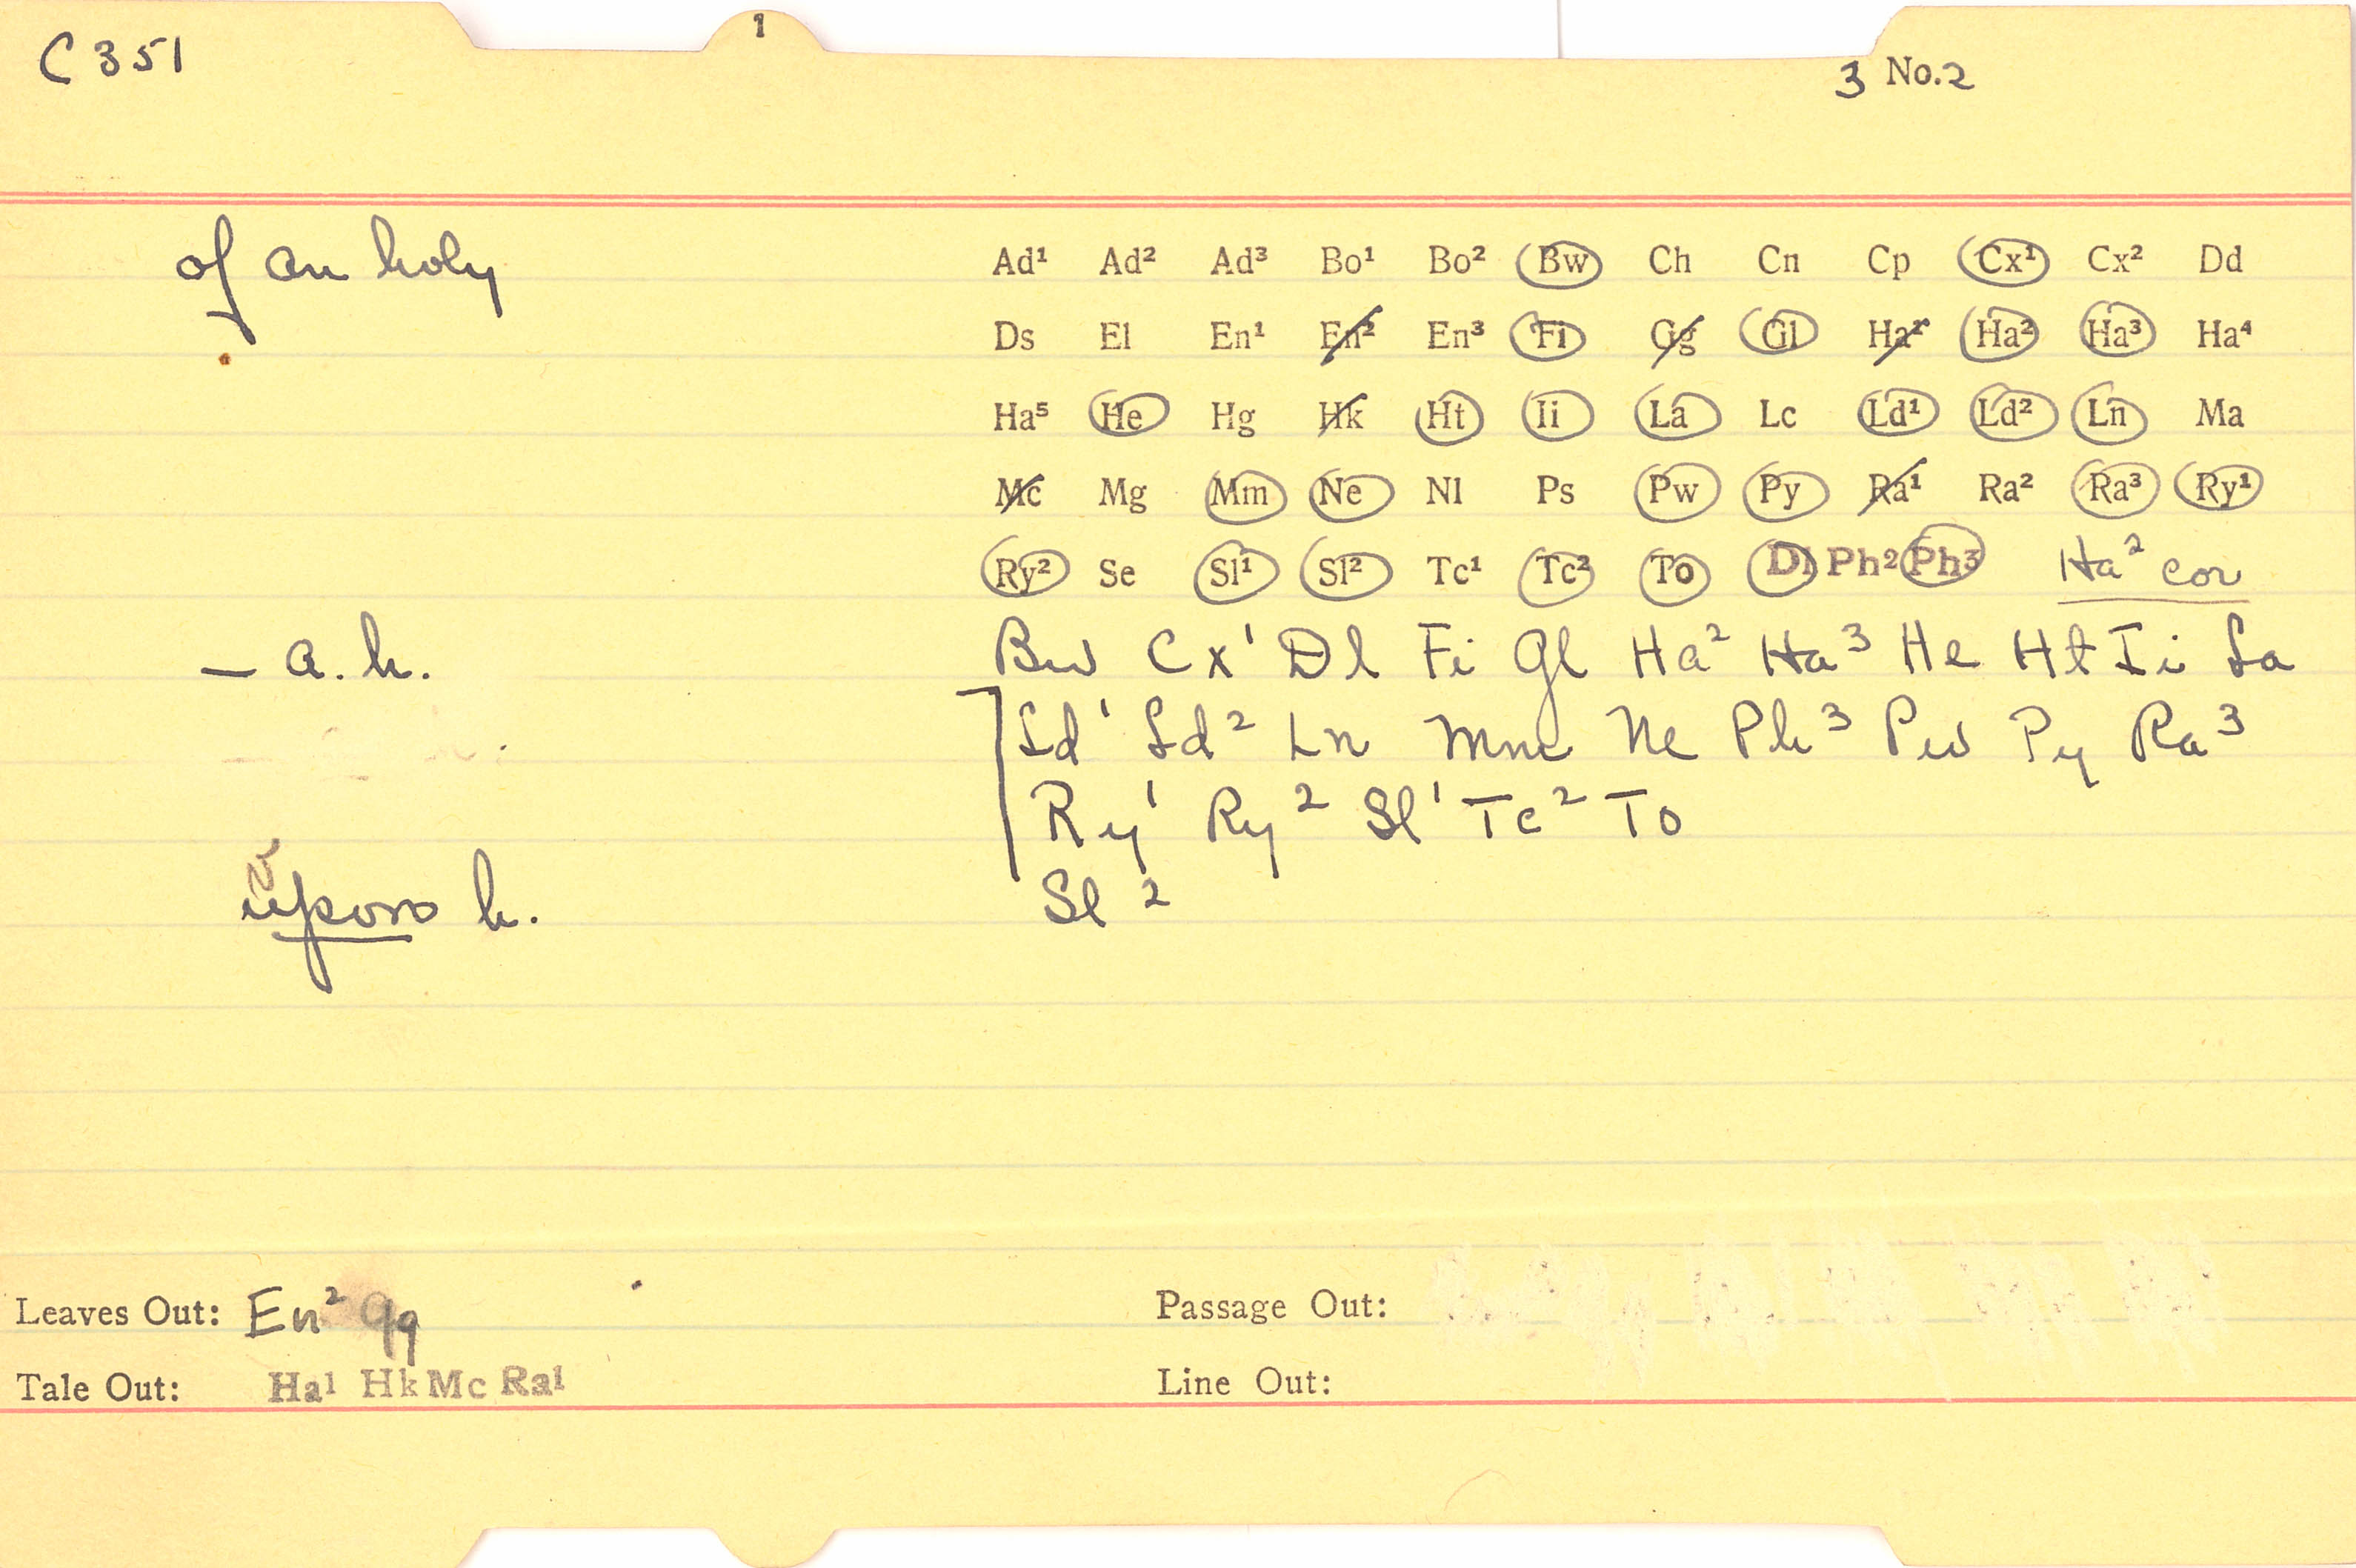 1
C 351
3 No.2
of an holy
Ad¹ Ad² Ad³ Bo¹ Bo² Bw Ch Cn Cp Cx¹ Cx² Dd
Ds El En¹ En² En³ Fi Gg Gl Ha¹ Ha² Ha³ Ha⁴
Ha⁵ He Hg Hk Ht Ii La Lc Ld¹ Ld² Ln Ma
Mc Mg Mm Ne Nl Ps Pw Py Ra¹ Ra² Ra³ Ry¹
Ry² Se Sl¹ Sl² Tc¹ Tc² To Dl Ph2 Ph3 Ha² cor
– a. h. Bw Cx¹ Dl Fi Gl Ha² Ha³ He Ht Ii La
Ld¹ Ld² Ln Mm Ne Ph³ Pw Py Ra³
Ry¹ Ry² Sl¹ Tc² To
upon h. Sl²
Leaves Out: En² Gg Passage Out:
Tale Out: Ha1 Hk Mc Ra1 Line Out: